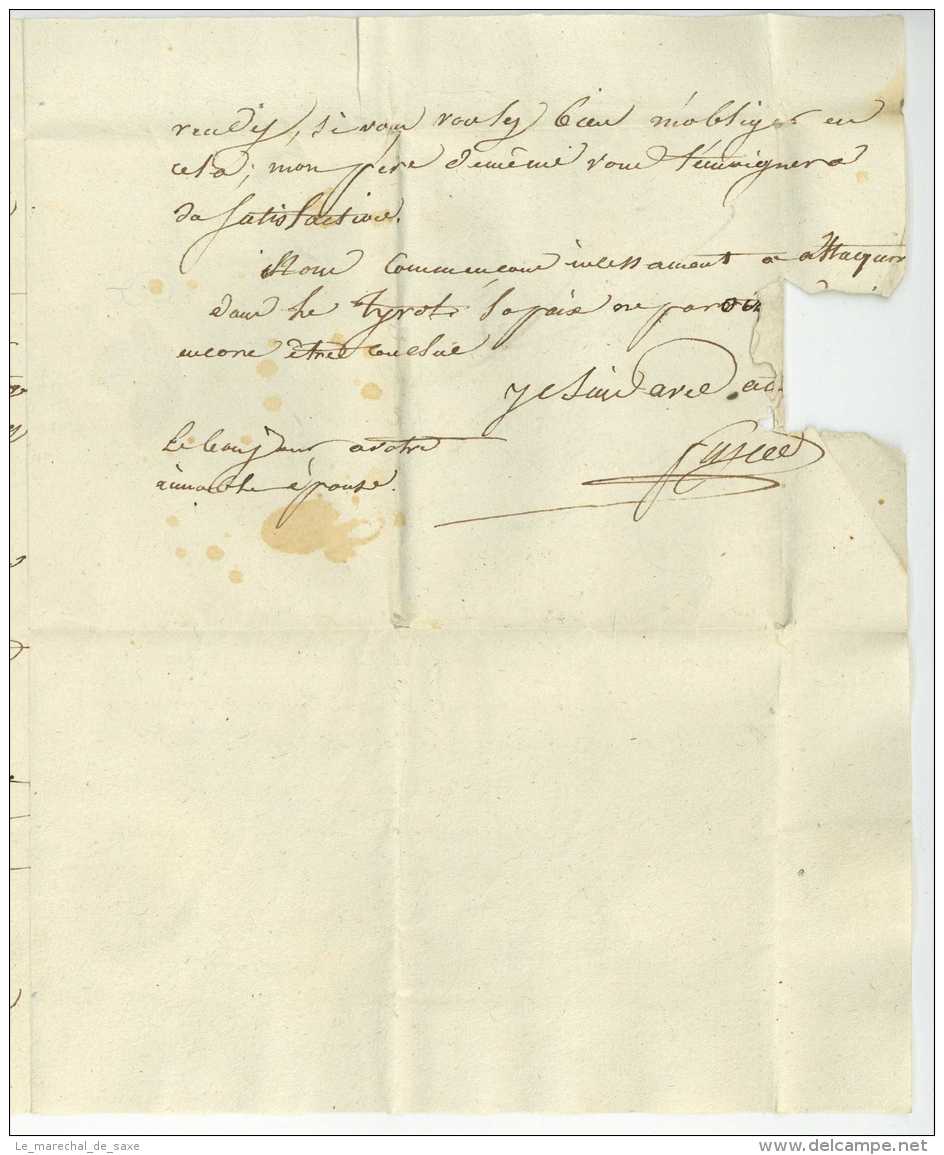 rendes, si vous voules bien m'obliger en
cela; mon père demême vous témoignera
sa satisfaction.
Nous commençons incessament a attaquer
dans le Tyrol, la paix ne paroit
encore être conclue
Je suis avec
le bonjour a votre
aimable épouse.
Le_marechal_de_saxe
www.delcampe.net